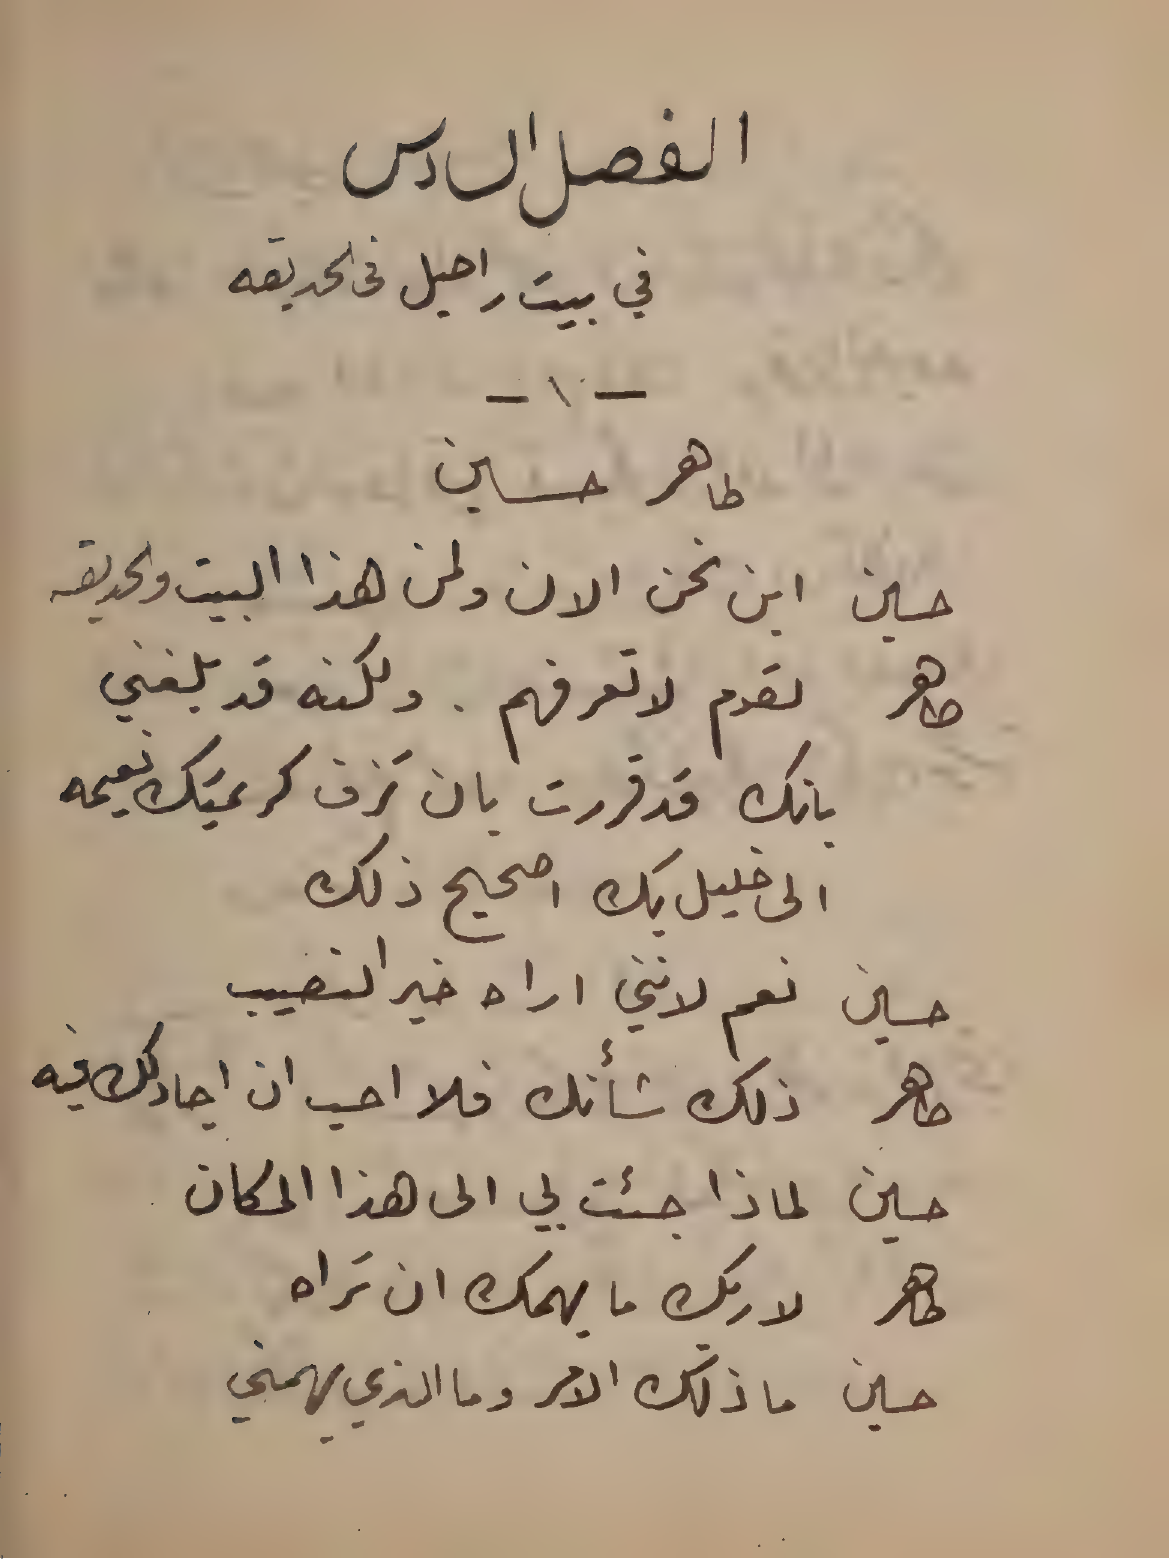 الفصل السادس
في بيت راحيل في الحديقه
— ١ —
طاهر حسين
حسين اين نحن الان ولمن هذا البيت والحديقه
طاهر لقوم لا تعرفهم . ولكنه قد بلغني
بانك قد قررت بان تزف كريمتك نعيمه
الى خليل بك اصحيح ذلك
حسين نعم لانني اراه خير النصيب
طاهر ذلك شأنك فلا احب ان اجادلك فيه
حسين لماذا جئت بي الى هذا المكان
طاهر لاريك ما يهمك ان تراه
حسين ما ذلك الامر وما الذي يهمني